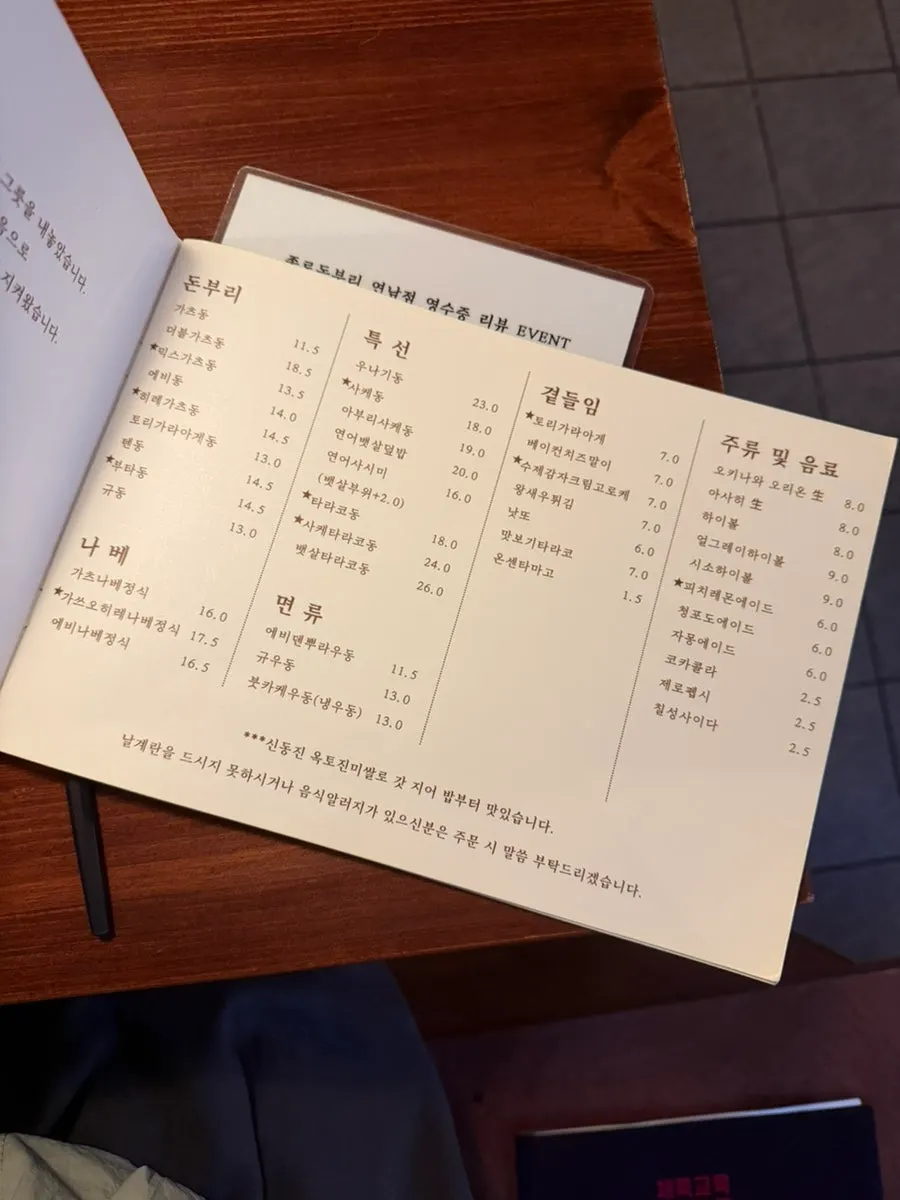 그릇을 내놓았습니다.
음으로
지켜왔습니다.
종로돈부리 연남점 영수증 리뷰 EVENT
돈부리
가츠동 11.5
더블가츠동 18.5
★믹스가츠동 13.5
에비동 14.0
★히레가츠동 14.5
토리가라아게동 13.0
텐동 14.5
★부타동 14.5
규동 13.0
나베
가츠나베정식 16.0
★가쓰오히레나베정식 17.5
에비나베정식 16.5
특선
우나기동 23.0
★사케동 18.0
아부리사케동 19.0
연어뱃살덮밥 20.0
연어사시미 16.0
(뱃살부위+2.0)
★타라코동 18.0
★사케타라코동 24.0
뱃살타라코동 26.0
면류
에비덴뿌라우동 11.5
규우동 13.0
붓카케우동(냉우동) 13.0
곁들임
★토리가라아게 7.0
베이컨치즈말이 7.0
★수제감자크림고로케 7.0
왕새우튀김 7.0
낫또 6.0
맛보기타라코 7.0
온센타마고 1.5
주류 및 음료
오키나와 오리온 生 8.0
아사히 生 8.0
하이볼 8.0
얼그레이하이볼 9.0
시소하이볼 9.0
★피치레몬에이드 6.0
청포도에이드 6.0
자몽에이드 6.0
코카콜라 2.5
제로펩시 2.5
칠성사이다 2.5
***신동진 옥토진미쌀로 갓 지어 밥부터 맛있습니다.
날계란을 드시지 못하시거나 음식알러지가 있으신분은 주문 시 말씀 부탁드리겠습니다.